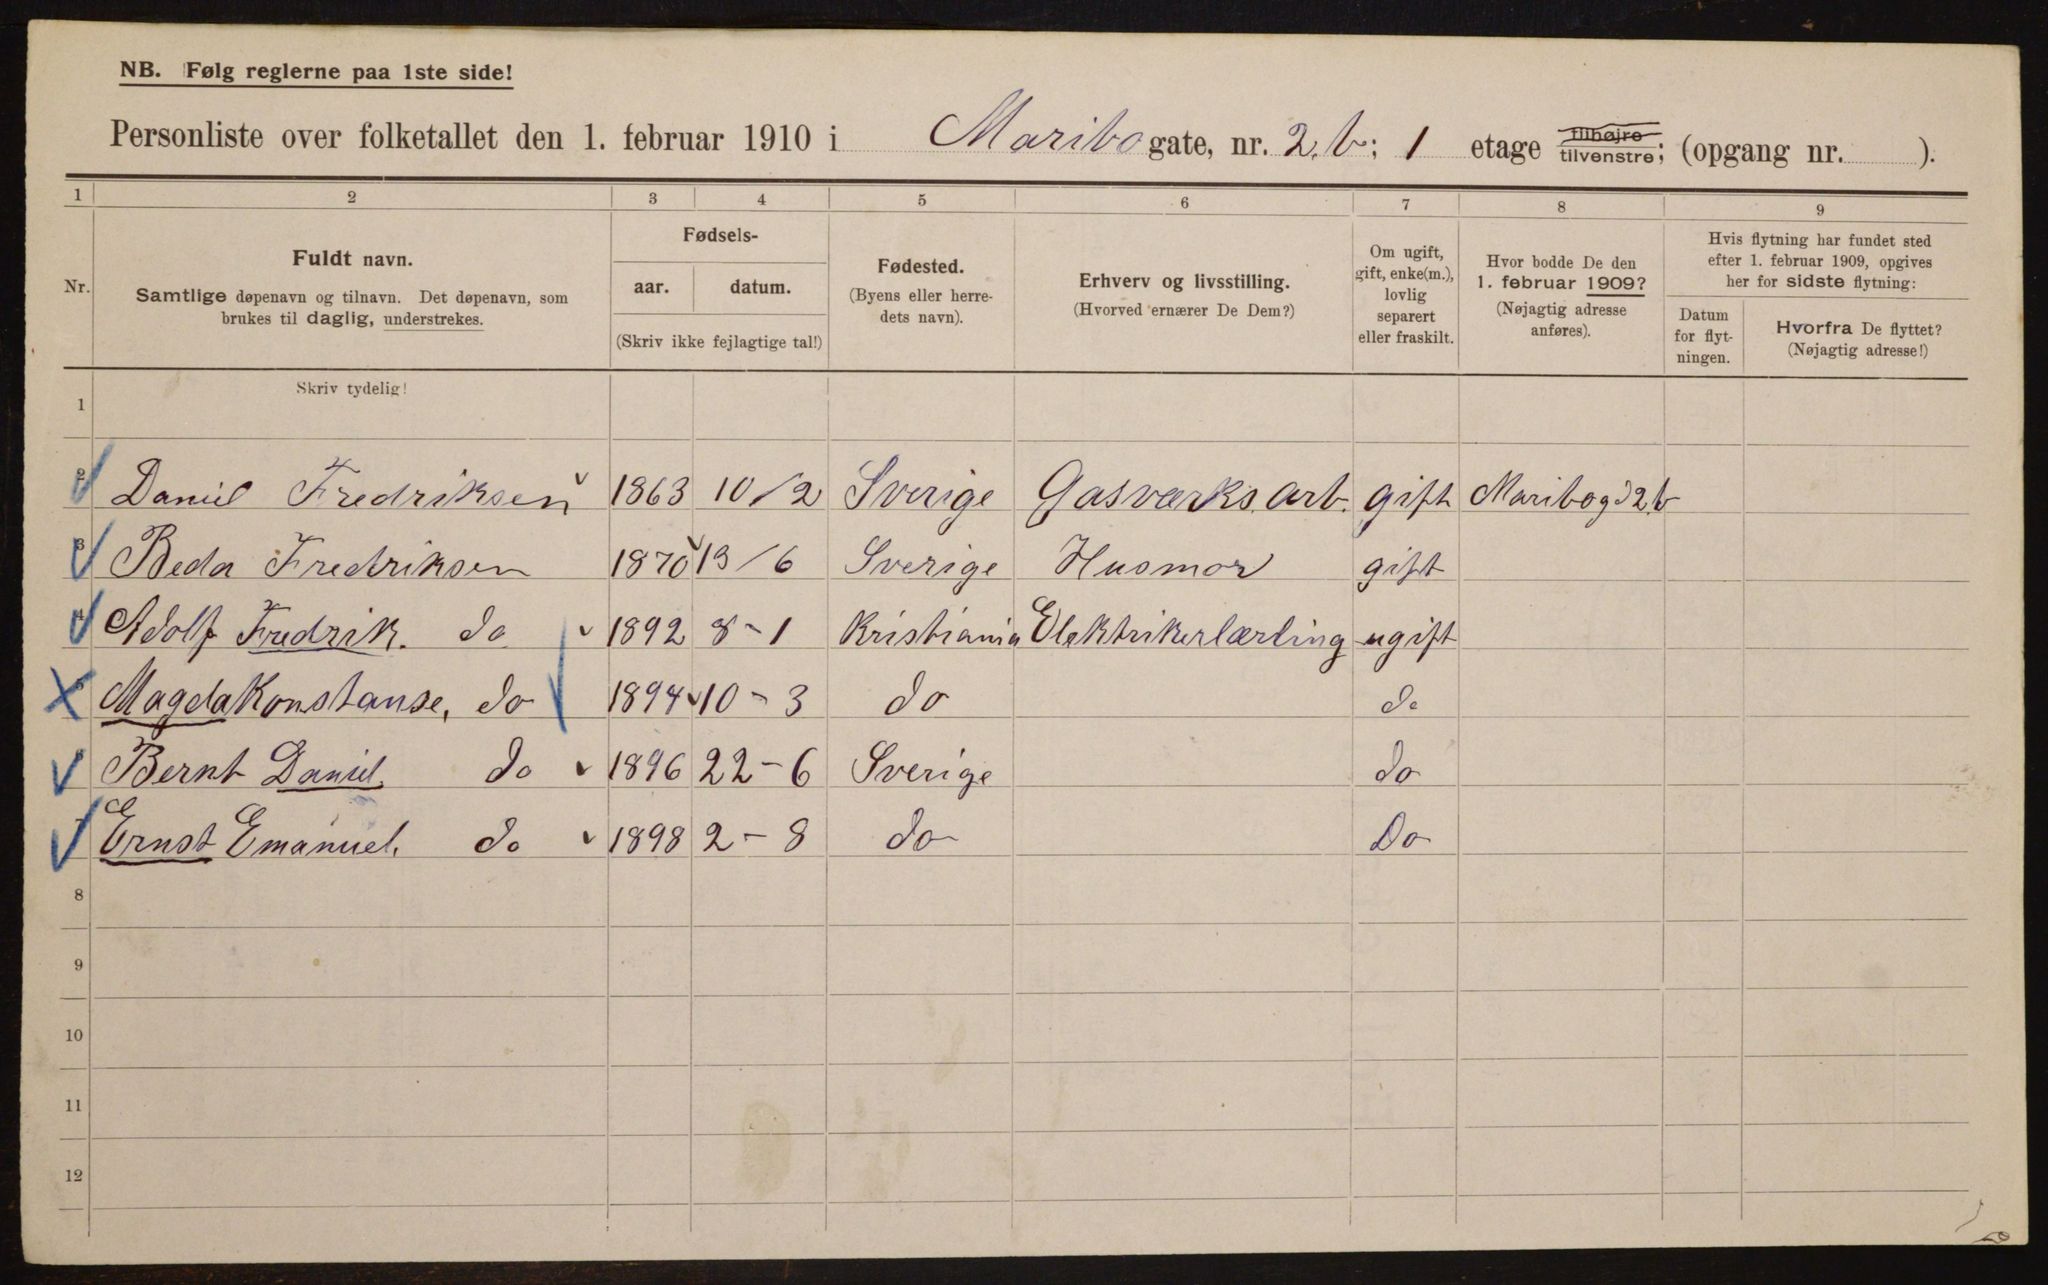 NB. Følg reglerne paa 1ste side!
Personliste over folketallet den 1. februar 1910 i Maribo gate, nr. 2.b; 1 etage tilhøjre tilvenstre; (opgang nr. ).
1 2 3 4 5 6 7 8 9
Nr.
Fuldt navn.
Samtlige døpenavn og tilnavn. Det døpenavn, som
brukes til daglig, understrekes.
Fødsels-
aar. datum.
(Skriv ikke fejlagtige tal!)
Fødested.
(Byens eller herre-
dets navn).
Erhverv og livsstilling.
(Hvorved ernærer De Dem?)
Om ugift,
gift, enke(m.),
lovlig
separert
eller fraskilt.
Hvor bodde De den
1. februar 1909?
(Nøjagtig adresse
anføres).
Hvis flytning har fundet sted
efter 1. februar 1909, opgives
her for sidste flytning:
Datum
for flyt-
ningen.
Hvorfra De flyttet?
(Nøjagtig adresse!)
Skriv tydelig!
1
2 Daniel Fredriksen 1863 10/2 Sverige Gasværks. Arb. gift Maribog 2.b
3 Beda Fredriksen 1870 13/6 Sverige Husmor gift
4 Adolf Fredrik. do 1892 8-1 Kristiania Elektrikerlærling ugift
5 Magda Konstanse, do 1894 10-3 do do
6 Bernt Daniel. do 1896 22-6 Sverige do
7 Ernst Emanuel. do 1898 2-8 do Do
8
9
10
11
12